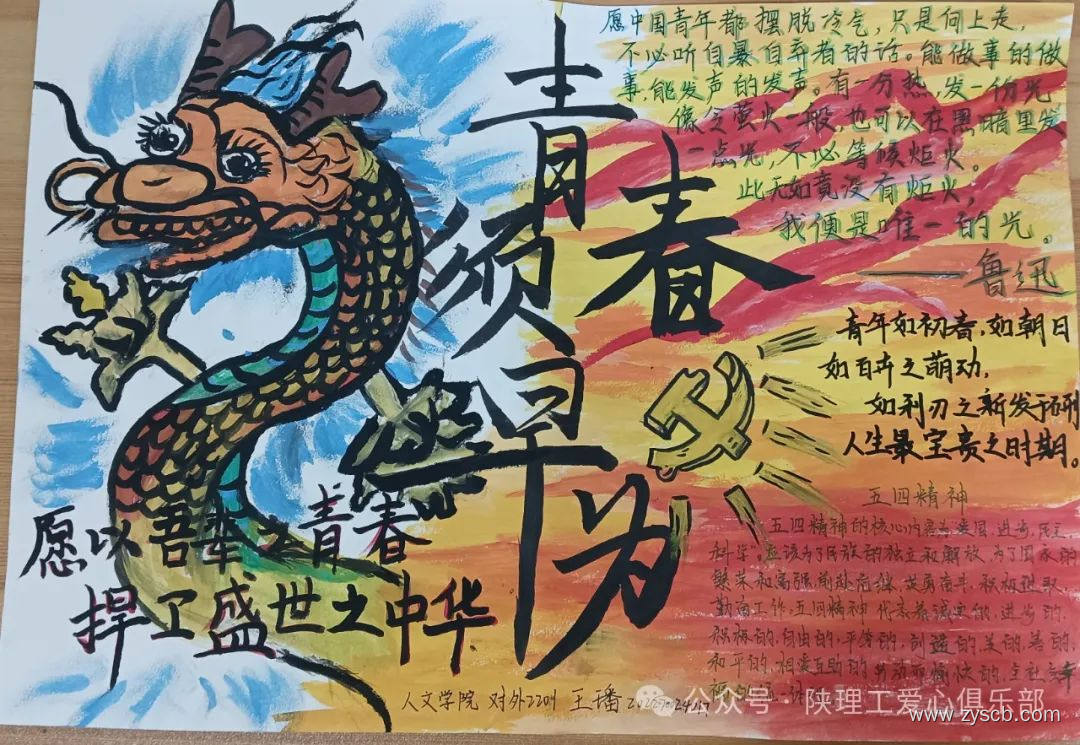 青春
须早为
愿中国青年都摆脱冷气，只是向上走，
不必听自暴自弃者的话。能做事的做
事，能发声的发声。有一分热，发一份光
像令萤火一般，也可以在黑暗里发
一点光，不必等候炬火。
此无如竟没有炬火，
我便是唯一的光。
——鲁迅
青年如初春，如朝日
如百卉之萌动，
如利刃之新发于硎
人生最宝贵之时期。
五四精神
五四精神的核心内容为爱国、进步、民主
科学。应该为了民族的独立和解放，为了国家的
繁荣和富强，前赴后继，英勇奋斗，积极进取
勤奋工作，五四精神代表着诚实的，进步的，
积极的，自由的，平等的，创造的，美的，善的，
和平的，相爱互助的，劳动而愉快的，全社会幸
愿以吾辈之青春
捍卫盛世之中华
人文学院 对外2201 王璠
公众号·陕理工爱心俱乐部
www.zyscb.com